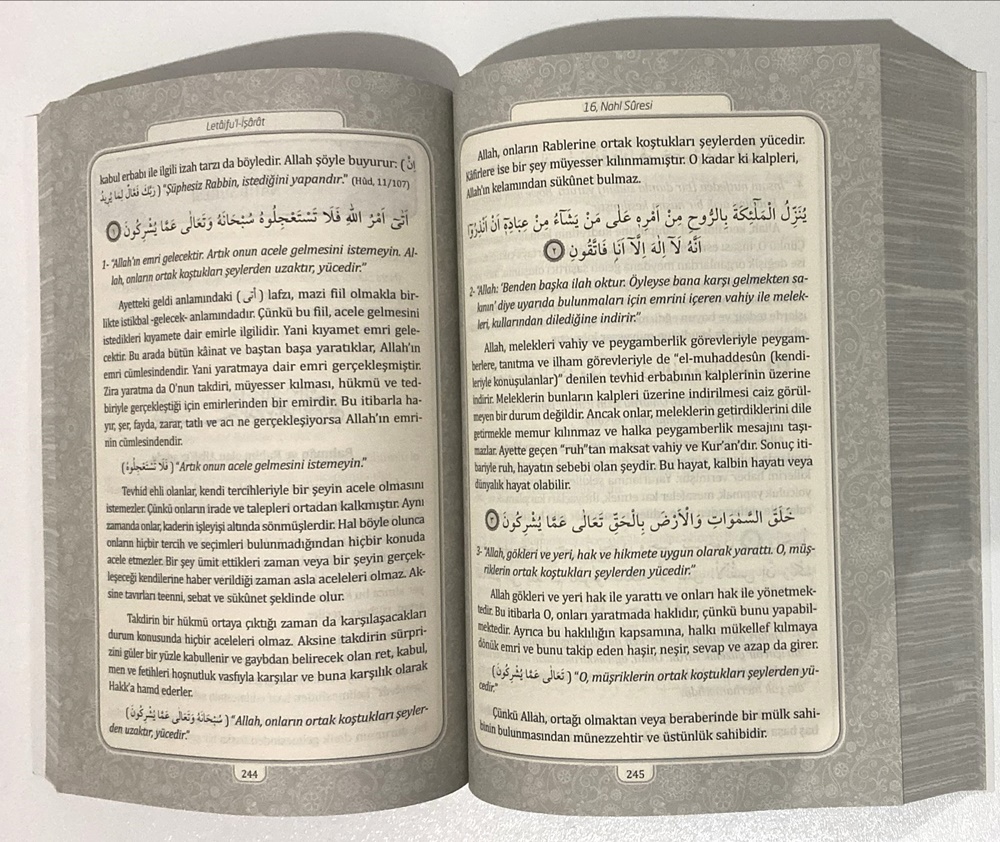 Letâifu'l-İşârât
kabul erbabı ile ilgili izah tarzı da böyledir. Allah şöyle buyurur: (إِنَّ
رَبَّكَ فَعَّالٌ لِمَا يُرِيدُ) "Şüphesiz Rabbin, istediğini yapandır." (Hûd, 11/107)
اَتٰٓى اَمْرُ اللّٰهِ فَلَا تَسْتَعْجِلُوهُ سُبْحَانَهُ وَتَعَالٰى عَمَّا يُشْرِكُونَ ﴿١﴾
1- "Allah'ın emri gelecektir. Artık onun acele gelmesini istemeyin. Al-
lah, onların ortak koştukları şeylerden uzaktır, yücedir."
Ayetteki geldi anlamındaki (أَتٰى) lafzı, mazi fiil olmakla bir-
likte istikbal -gelecek- anlamındadır. Çünkü bu fiil, acele gelmesini
istedikleri kıyamete dair emirle ilgilidir. Yani kıyamet emri gele-
cektir. Bu arada bütün kâinat ve baştan başa yaratıklar, Allah'ın
emri cümlesindendir. Yani yaratmaya dair emri gerçekleşmiştir.
Zira yaratma da O'nun takdiri, müyesser kılması, hükmü ve ted-
biriyle gerçekleştiği için emirlerinden bir emirdir. Bu itibarla ha-
yır, şer, fayda, zarar, tatlı ve acı ne gerçekleşiyorsa Allah'ın emri-
nin cümlesindendir.
(فَلَا تَسْتَعْجِلُوهُ) "Artık onun acele gelmesini istemeyin."
Tevhid ehli olanlar, kendi tercihleriyle bir şeyin acele olmasını
istemezler. Çünkü onların irade ve talepleri ortadan kalkmıştır. Aynı
zamanda onlar, kaderin işleyişi altında sönmüşlerdir. Hal böyle olunca
onların hiçbir tercih ve seçimleri bulunmadığından hiçbir konuda
acele etmezler. Bir şey ümit ettikleri zaman veya bir şeyin gerçek-
leşeceği kendilerine haber verildiği zaman asla aceleleri olmaz. Ak-
sine tavırları teenni, sebat ve sükûnet şeklinde olur.
Takdirin bir hükmü ortaya çıktığı zaman da karşılaşacakları
durum konusunda hiçbir aceleleri olmaz. Aksine takdirin sürpri-
zini güler bir yüzle kabullenir ve gaybdan belirecek olan ret, kabul,
men ve fetihleri hoşnutluk vasfıyla karşılar ve buna karşılık olarak
Hakk'a hamd ederler.
(سُبْحَانَهُ وَتَعَالٰى عَمَّا يُشْرِكُونَ) "Allah, onların ortak koştukları şeyler-
den uzaktır, yücedir."
244
16, Nahl Sûresi
Allah, onların Rablerine ortak koştukları şeylerden yücedir.
Kâfirlere ise bir şey müyesser kılınmamıştır. O kadar ki kalpleri,
Allah'ın kelamından sükûnet bulmaz.
يُنَزِّلُ الْمَلٰٓئِكَةَ بِالرُّوحِ مِنْ اَمْرِهٖ عَلٰى مَنْ يَشَآءُ مِنْ عِبَادِهٖٓ اَنْ اَنْذِرُوٓا
اَنَّهُ لَآ اِلٰهَ اِلَّآ اَنَا۬ فَاتَّقُونِ ﴿٢﴾
2- "Allah: 'Benden başka ilah oktur. Öyleyse bana karşı gelmekten sa-
kının' diye uyarıda bulunmaları için emrini içeren vahiy ile melek-
leri, kullarından dilediğine indirir."
Allah, melekleri vahiy ve peygamberlik görevleriyle peygam-
berlere, tanıtma ve ilham görevleriyle de "el-muhaddesûn (kendi-
leriyle konuşulanlar)" denilen tevhid erbabının kalplerinin üzerine
indirir. Meleklerin bunların kalpleri üzerine indirilmesi caiz görül-
meyen bir durum değildir. Ancak onlar, meleklerin getirdiklerini dile
getirmekle memur kılınmaz ve halka peygamberlik mesajını taşı-
mazlar. Ayette geçen "ruh"tan maksat vahiy ve Kur'an'dır. Sonuç iti-
bariyle ruh, hayatın sebebi olan şeydir. Bu hayat, kalbin hayatı veya
dünyalık hayat olabilir.
خَلَقَ السَّمٰوَاتِ وَالْاَرْضَ بِالْحَقِّ تَعَالٰى عَمَّا يُشْرِكُونَ ﴿٣﴾
3- "Allah, gökleri ve yeri, hak ve hikmete uygun olarak yarattı. O, müş-
riklerin ortak koştukları şeylerden yücedir."
Allah gökleri ve yeri hak ile yarattı ve onları hak ile yönetmek-
tedir. Bu itibarla O, onları yaratmada haklıdır, çünkü bunu yapabil-
mektedir. Ayrıca bu haklılığın kapsamına, halkı mükellef kılmaya
dönük emri ve bunu takip eden haşir, neşir, sevap ve azap da girer.
(تَعَالٰى عَمَّا يُشْرِكُونَ) "O, müşriklerin ortak koştukları şeylerden yü-
cedir."
Çünkü Allah, ortağı olmaktan veya beraberinde bir mülk sahi-
binin bulunmasından münezzehtir ve üstünlük sahibidir.
245